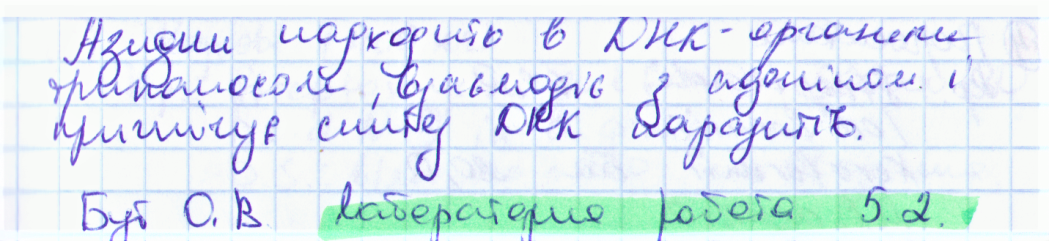 Азидин надходить в ДНК-органели
трипаносом, взаємодіє з аденіном і
пригнічує синтез ДНК паразитів.
Бут О.В. Лабораторна робота 5.2.